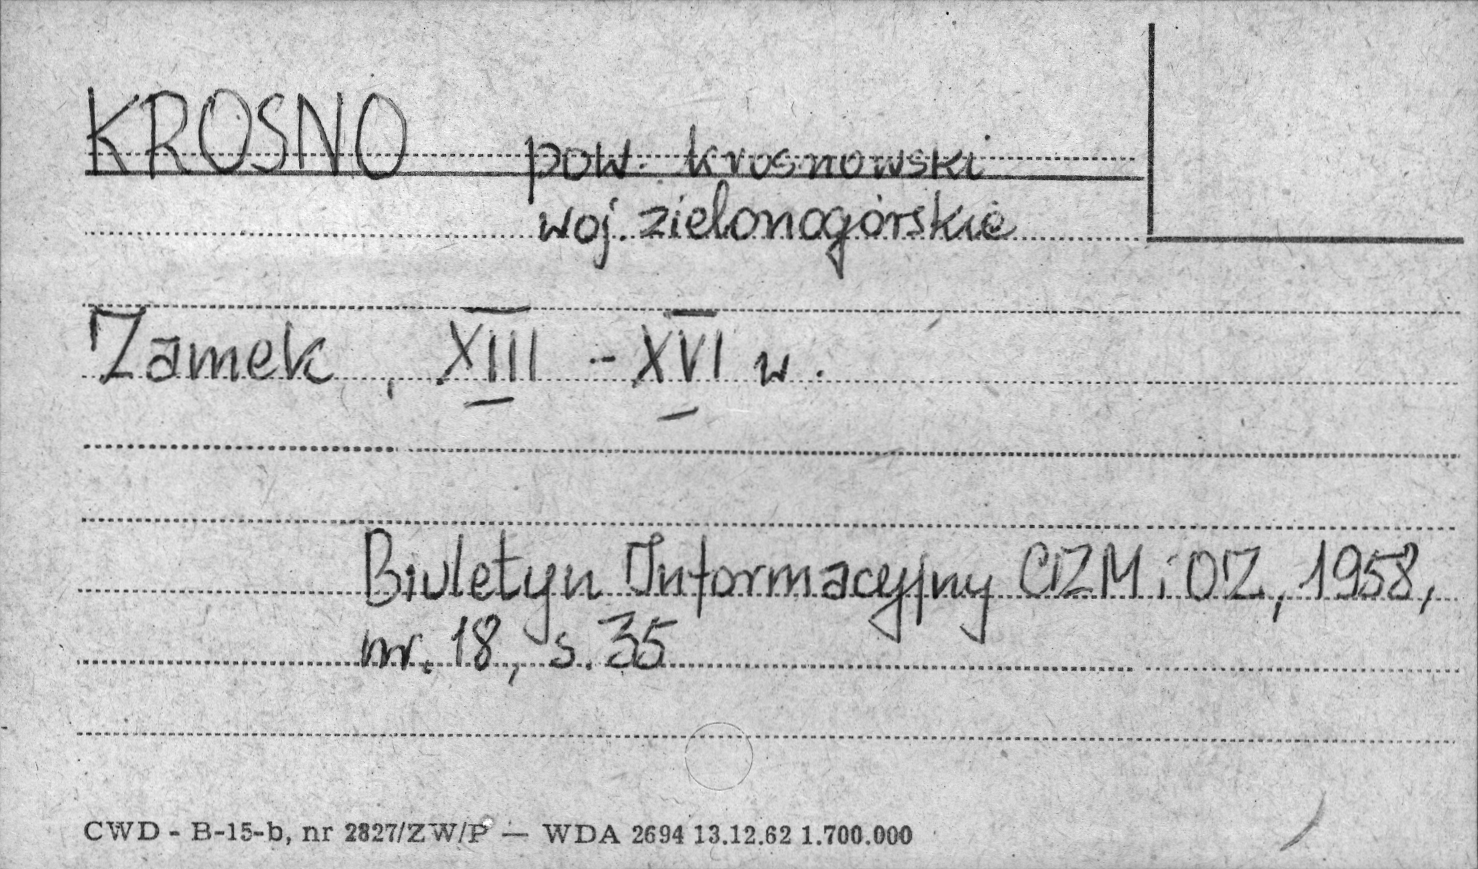 KROSNO pow. krosnowski
woj. zielonogórskie
Zamek, XIII - XVI w.
Biuletyn Informacyjny CZM i OZ, 1958,
nr. 18, s. 35
CWD - B-15-b, nr 2827/ZW/P — WDA 2694 13.12.62 1.700.000